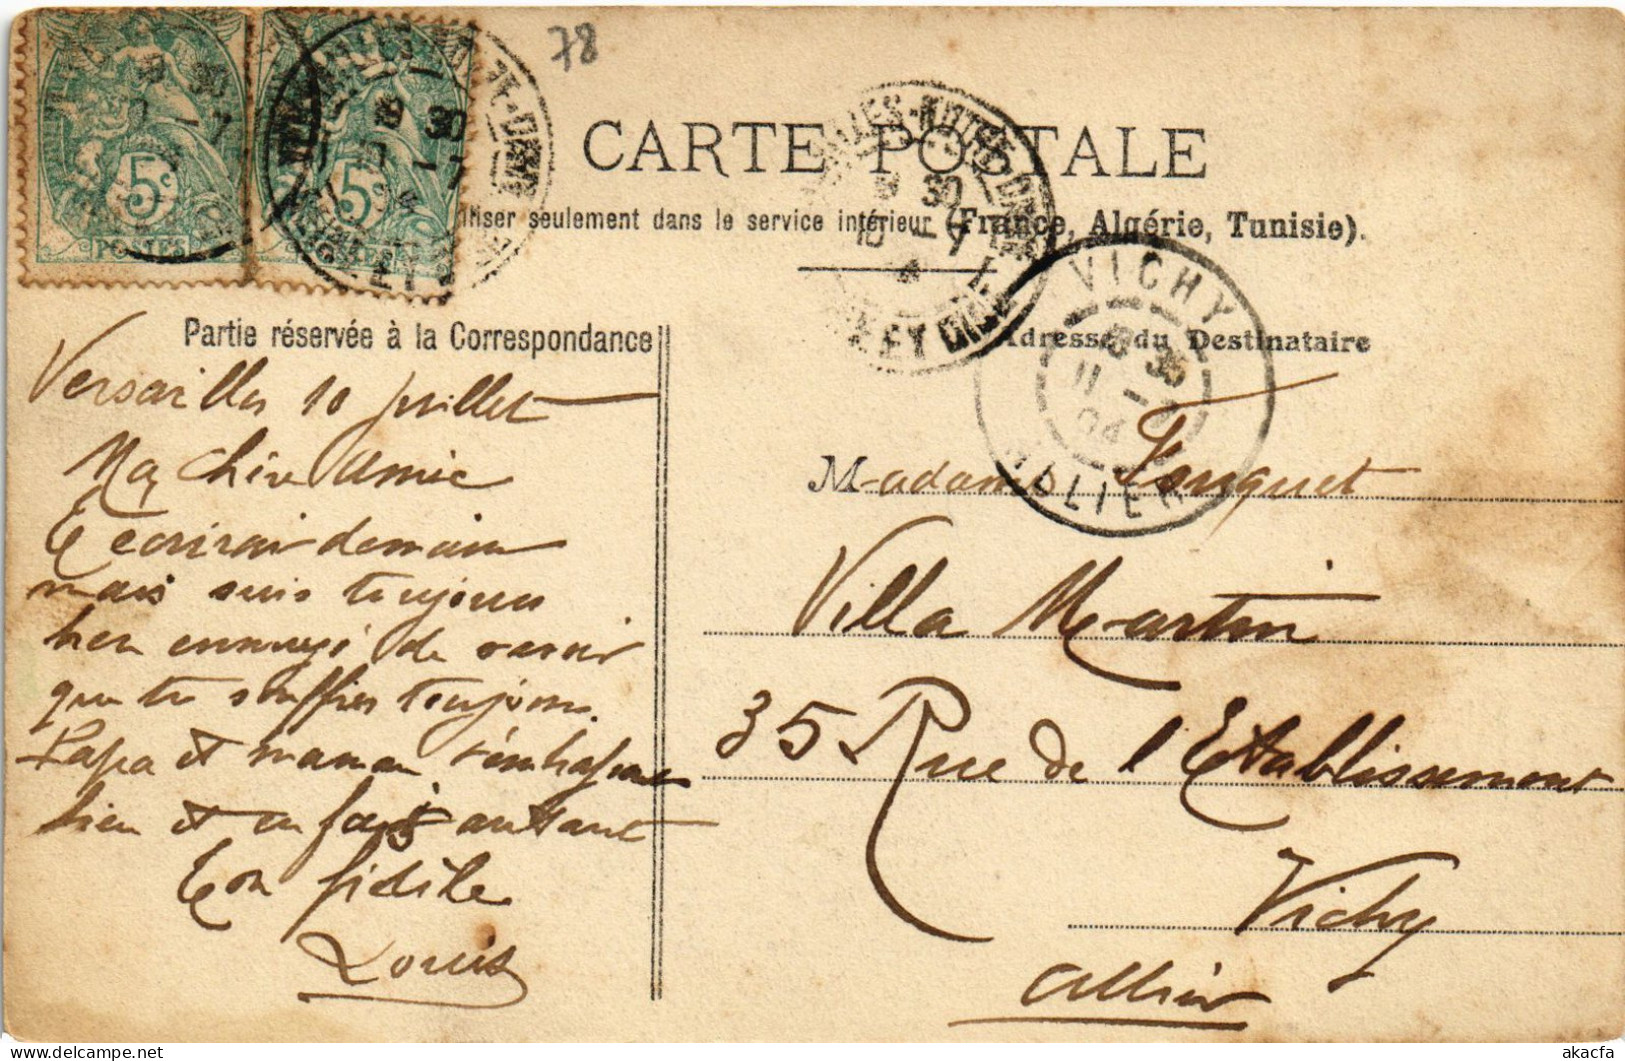 78
CARTE POSTALE
iliser seulement dans le service intérieur (France, Algérie, Tunisie).
5c 5c
POSTES
VERSAILLES-NOTRE-DAME
30
10 -7
ET OISE
VICHY
30
11 -7
04
ALLIER
Partie réservée à la Correspondance
Adresse du Destinataire
Versailles 10 juillet
Ma chère amie
Ecrirai demain
mais suis toujours
bien ennuyé de savoir
que tu souffres toujours.
Papa et maman t'embrassent
bien et en fais autant
Ton fidèle
Louis
Madame Fouquet
Villa Martin
35 Rue de l'Etablissement
Vichy
Allier
akacfa